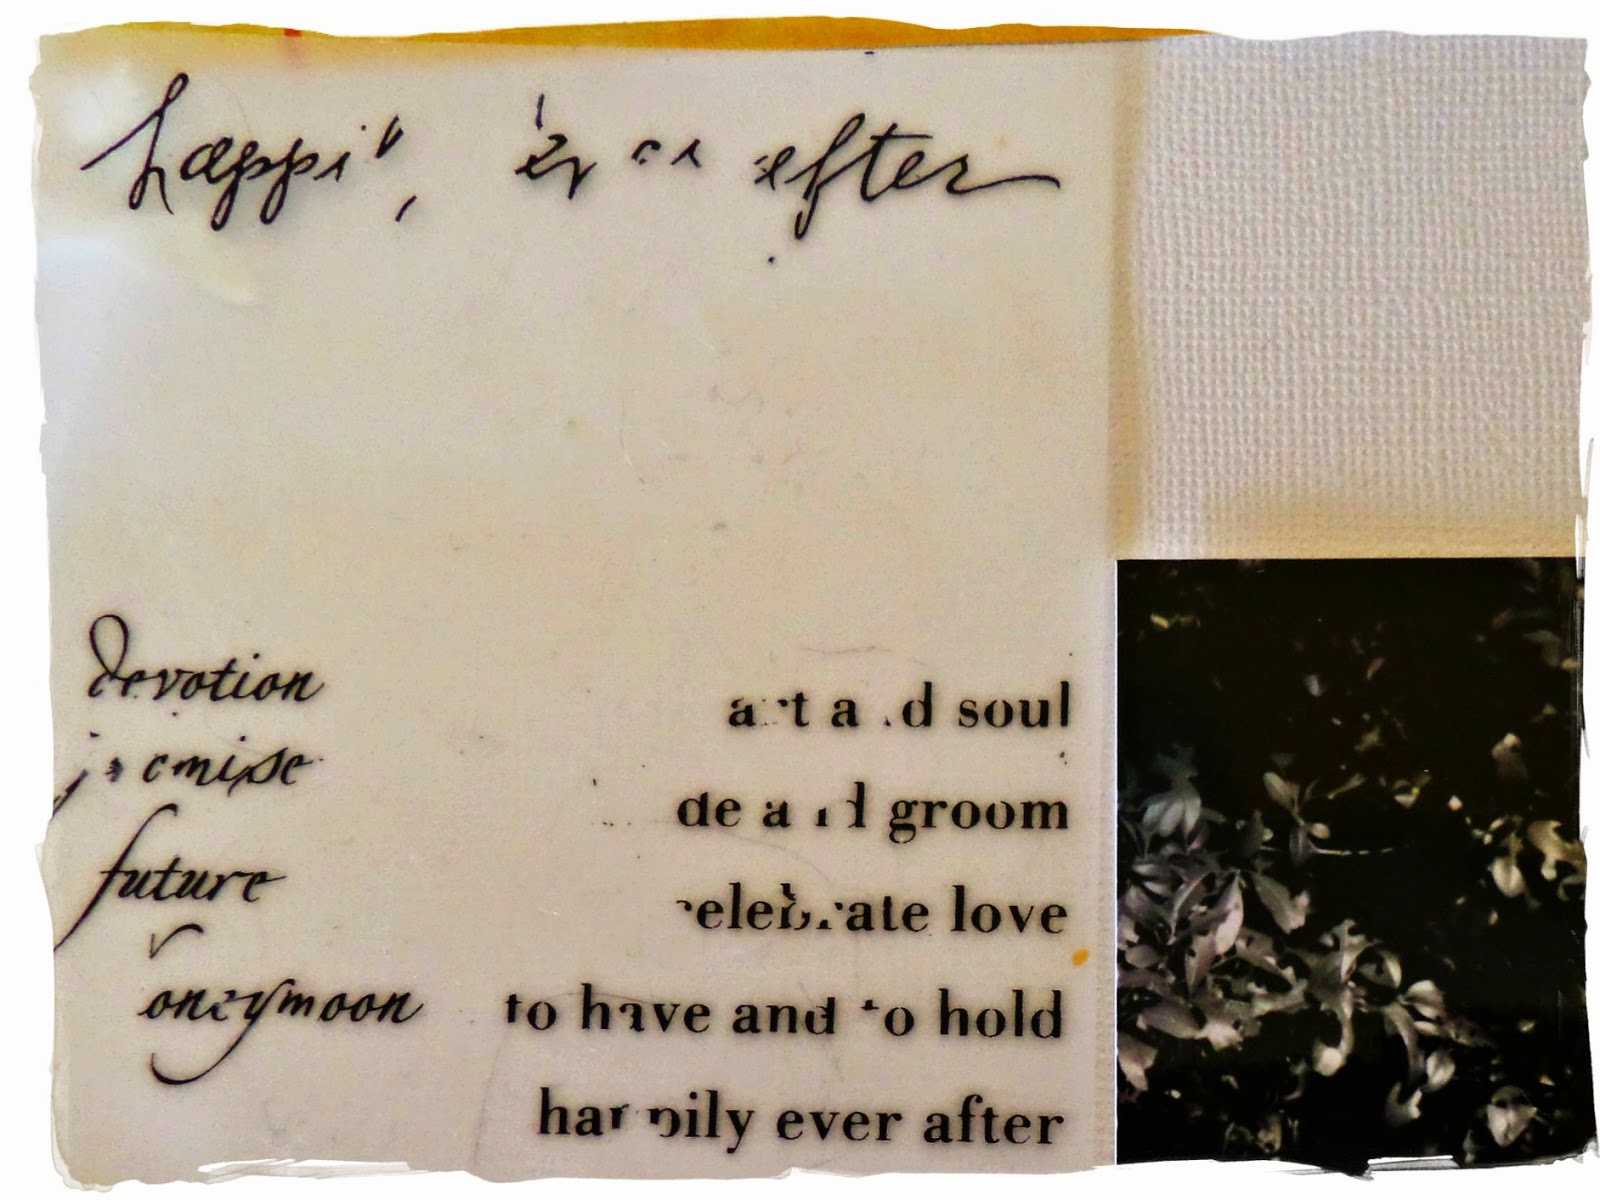 happily ever after
devotion
promise
future
honeymoon
art and soul
de and groom
celebrate love
to have and to hold
happily ever after